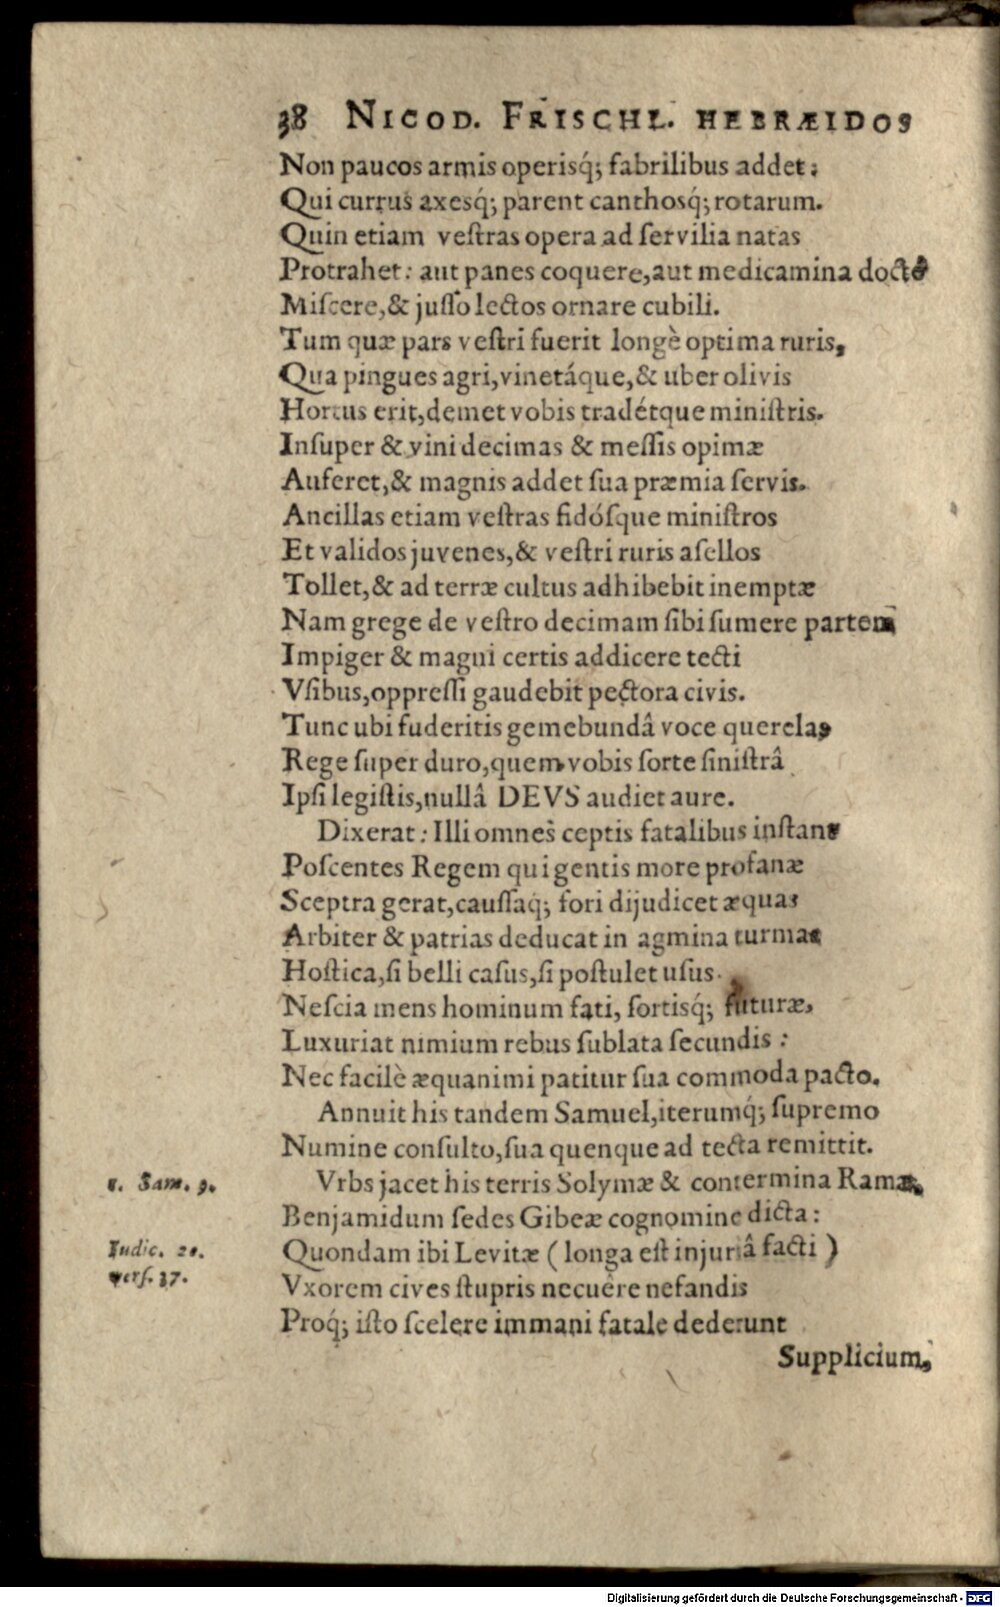 38 NICOD. FRISCHL. HEBRÆIDOS
Non paucos armis operisq́; fabrilibus addet:
Qui currus axesq́; parent canthosq́; rotarum.
Quin etiam vestras opera ad servilia natas
Protrahet: aut panes coquere, aut medicamina doctè
Miscere, & jusso lectos ornare cubili.
Tum quæ pars vestri fuerit longè optima ruris,
Qua pingues agri, vinetáque, & uber olivis
Hortus erit, demet vobis tradétque ministris.
Insuper & vini decimas & messis opimæ
Auferet, & magnis addet sua præmia servis.
Ancillas etiam vestras fidósque ministros
Et validos juvenes, & vestri ruris asellos
Tollet, & ad terræ cultus adhibebit inemptæ
Nam grege de vestro decimam sibi sumere partem
Impiger & magni certis addicere tecti
Vsibus, oppressi gaudebit pectora civis.
Tunc ubi fuderitis gemebundâ voce querelas
Rege super duro, quem vobis sorte sinistrâ
Ipsi legistis, nullâ DEVS audiet aure.
Dixerat: Illi omnes ceptis fatalibus instant
Poscentes Regem qui gentis more profanæ
Sceptra gerat, caussaq́; fori dijudicet æquas
Arbiter & patrias deducat in agmina turmas
Hostica, si belli casus, si postulet usus.
Nescia mens hominum fati, sortisq́; futuræ,
Luxuriat nimium rebus sublata secundis:
Nec facilè æquanimi patitur sua commoda pacto.
Annuit his tandem Samuel, iterumq́; supremo
Numine consulto, sua quenque ad tecta remittit.
1. Sam. 9. Vrbs jacet his terris Solymæ & contermina Ramæ,
Benjamidum sedes Gibeæ cognomine dicta:
Iudic. 20. Quondam ibi Levitæ (longa est injuriâ facti)
vers. 37. Vxorem cives stupris necuêre nefandis
Proq́; isto scelere immani fatale dederunt
Supplicium,
Digitalisierung gefördert durch die Deutsche Forschungsgemeinschaft - DFG